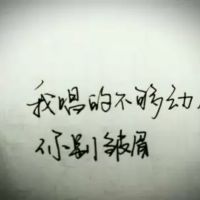 我唱的不够动人
你别皱眉